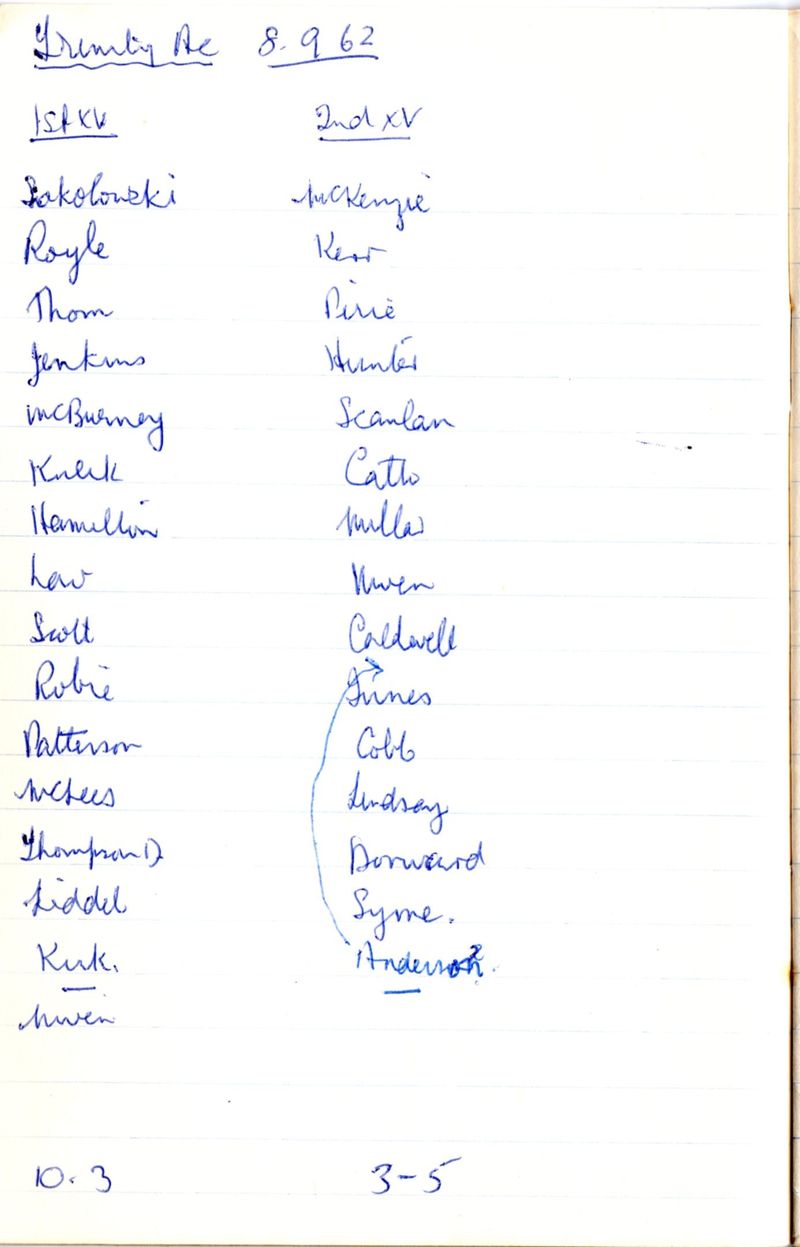 Trinity Ac 8. 9 62
1st XV 2nd XV
Sokolowski McKenzie
Royle Kerr
Thom Pirie
Jenkins Hunter
McBurney Scanlan
Catto
Hamilton Millar
Law Niven
Scott Caldwell
Robie Innes
Patterson Cobb
McLees Lindsay
Thompson D Dorward
Liddel Syme.
Kirk. Anderson
Niven
10. 3 3-5